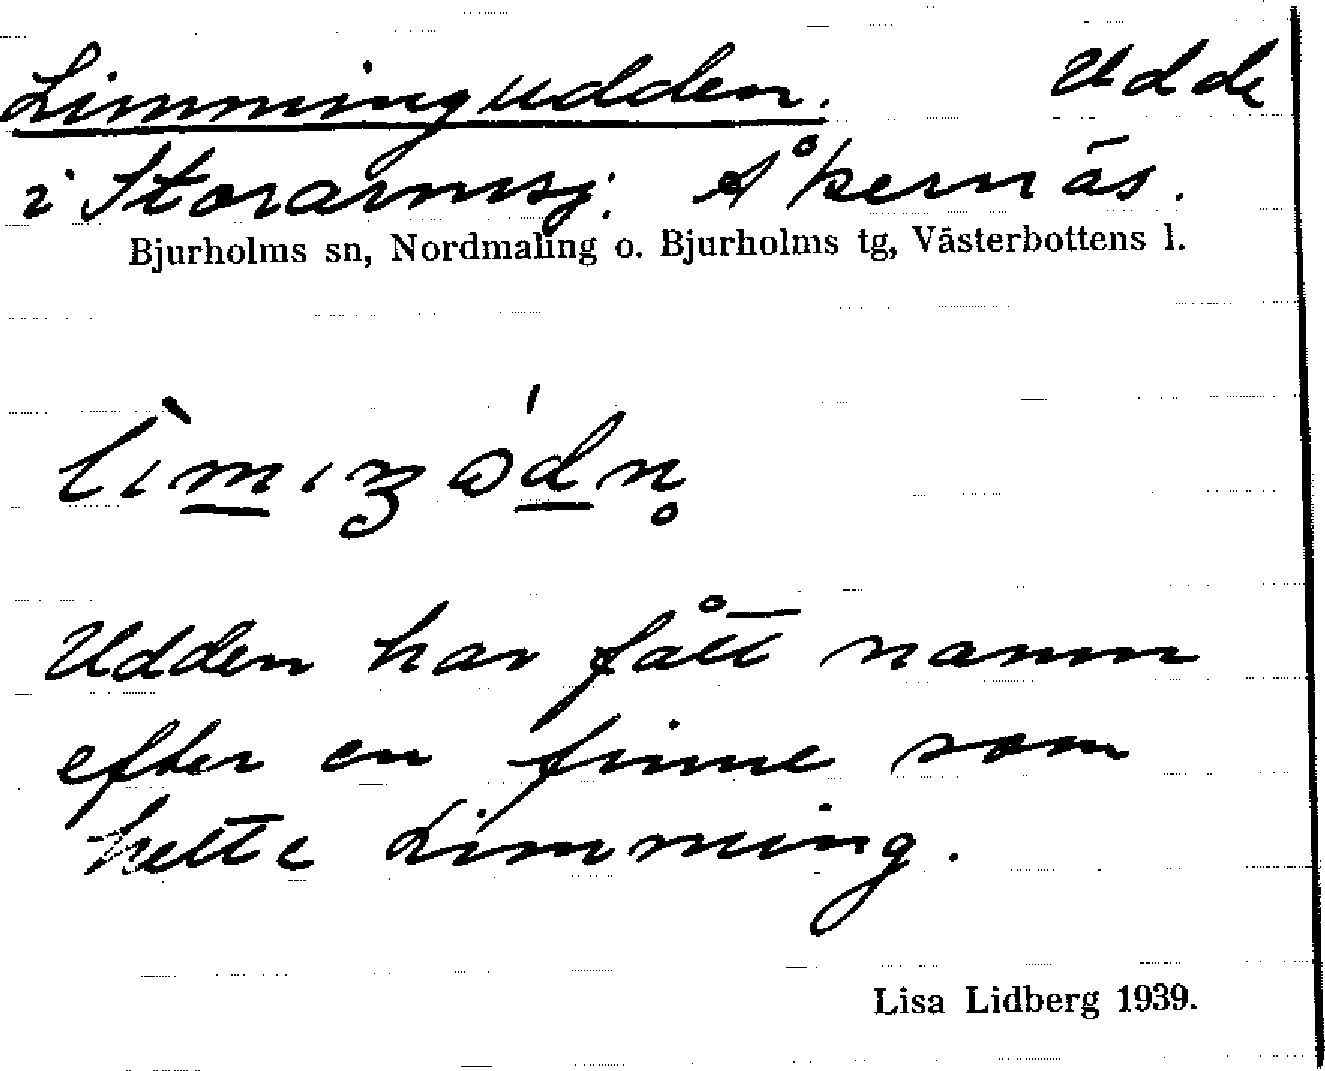 Limmingudden. Udde
i Storarmsj. Åkernäs.
Bjurholms sn, Nordmaling o. Bjurholms tg, Västerbottens l.
Udden har fått namn
efter en finne som
hette Limming.
Lisa Lidberg 1939.